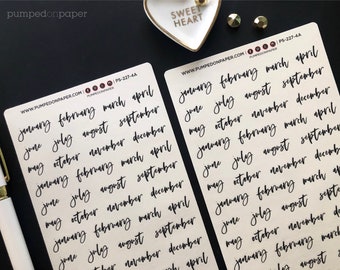 pumpedonpaper
SWEET
HEART
WWW.PUMPEDONPAPER.COM PS-227-4A
PUMPEDONPAPER
january february march april
june july august september
may october november december
january february march april
june july august september
may october november december
january february march april
june july august september
WWW.PUMPEDONPAPER.COM PS-227-4A
PUMPEDONPAPER
january february march april
june july august september
may october november december
january february march april
june july august september
may october november december
january february march
june july august